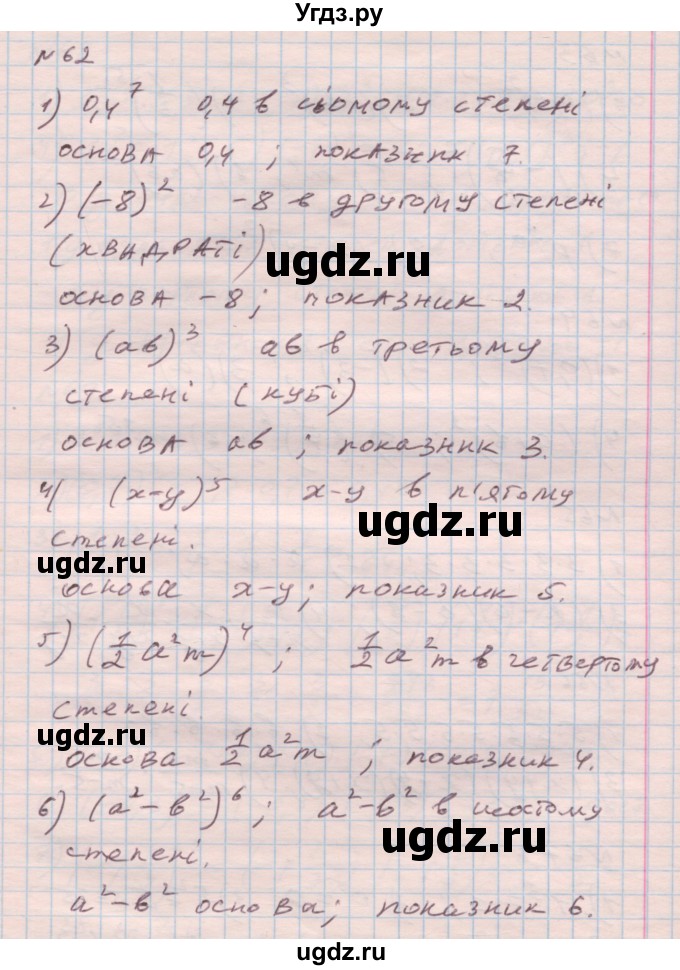 Угдз.ру
№ 62
1) 0,4⁷ 0,4 в сьомому степені
основа 0,4 ; показник 7.
2) (−8)² −8 в другому степені
(квадраті)
ugdz.ru
основа −8; показник 2.
ugdz.ru
3) (ab)³ ab в третьому
степені (кубі)
основа ab ; показник 3.
4) (x−y)⁵ x−y в п'ятому
ugdz.ru
степені.
ugdz.ru
основа x−y; показник 5.
5) (1/2 a²m)⁴ ; 1/2 a²m в четвертому
степені.
ugdz.ru
основа 1/2 a²m ; показник 4.
6) (a²−b²)⁶ ; a²−b² в шостому
ugdz.ru
степені.
a²−b² основа; показник 6.
ugdz.ru